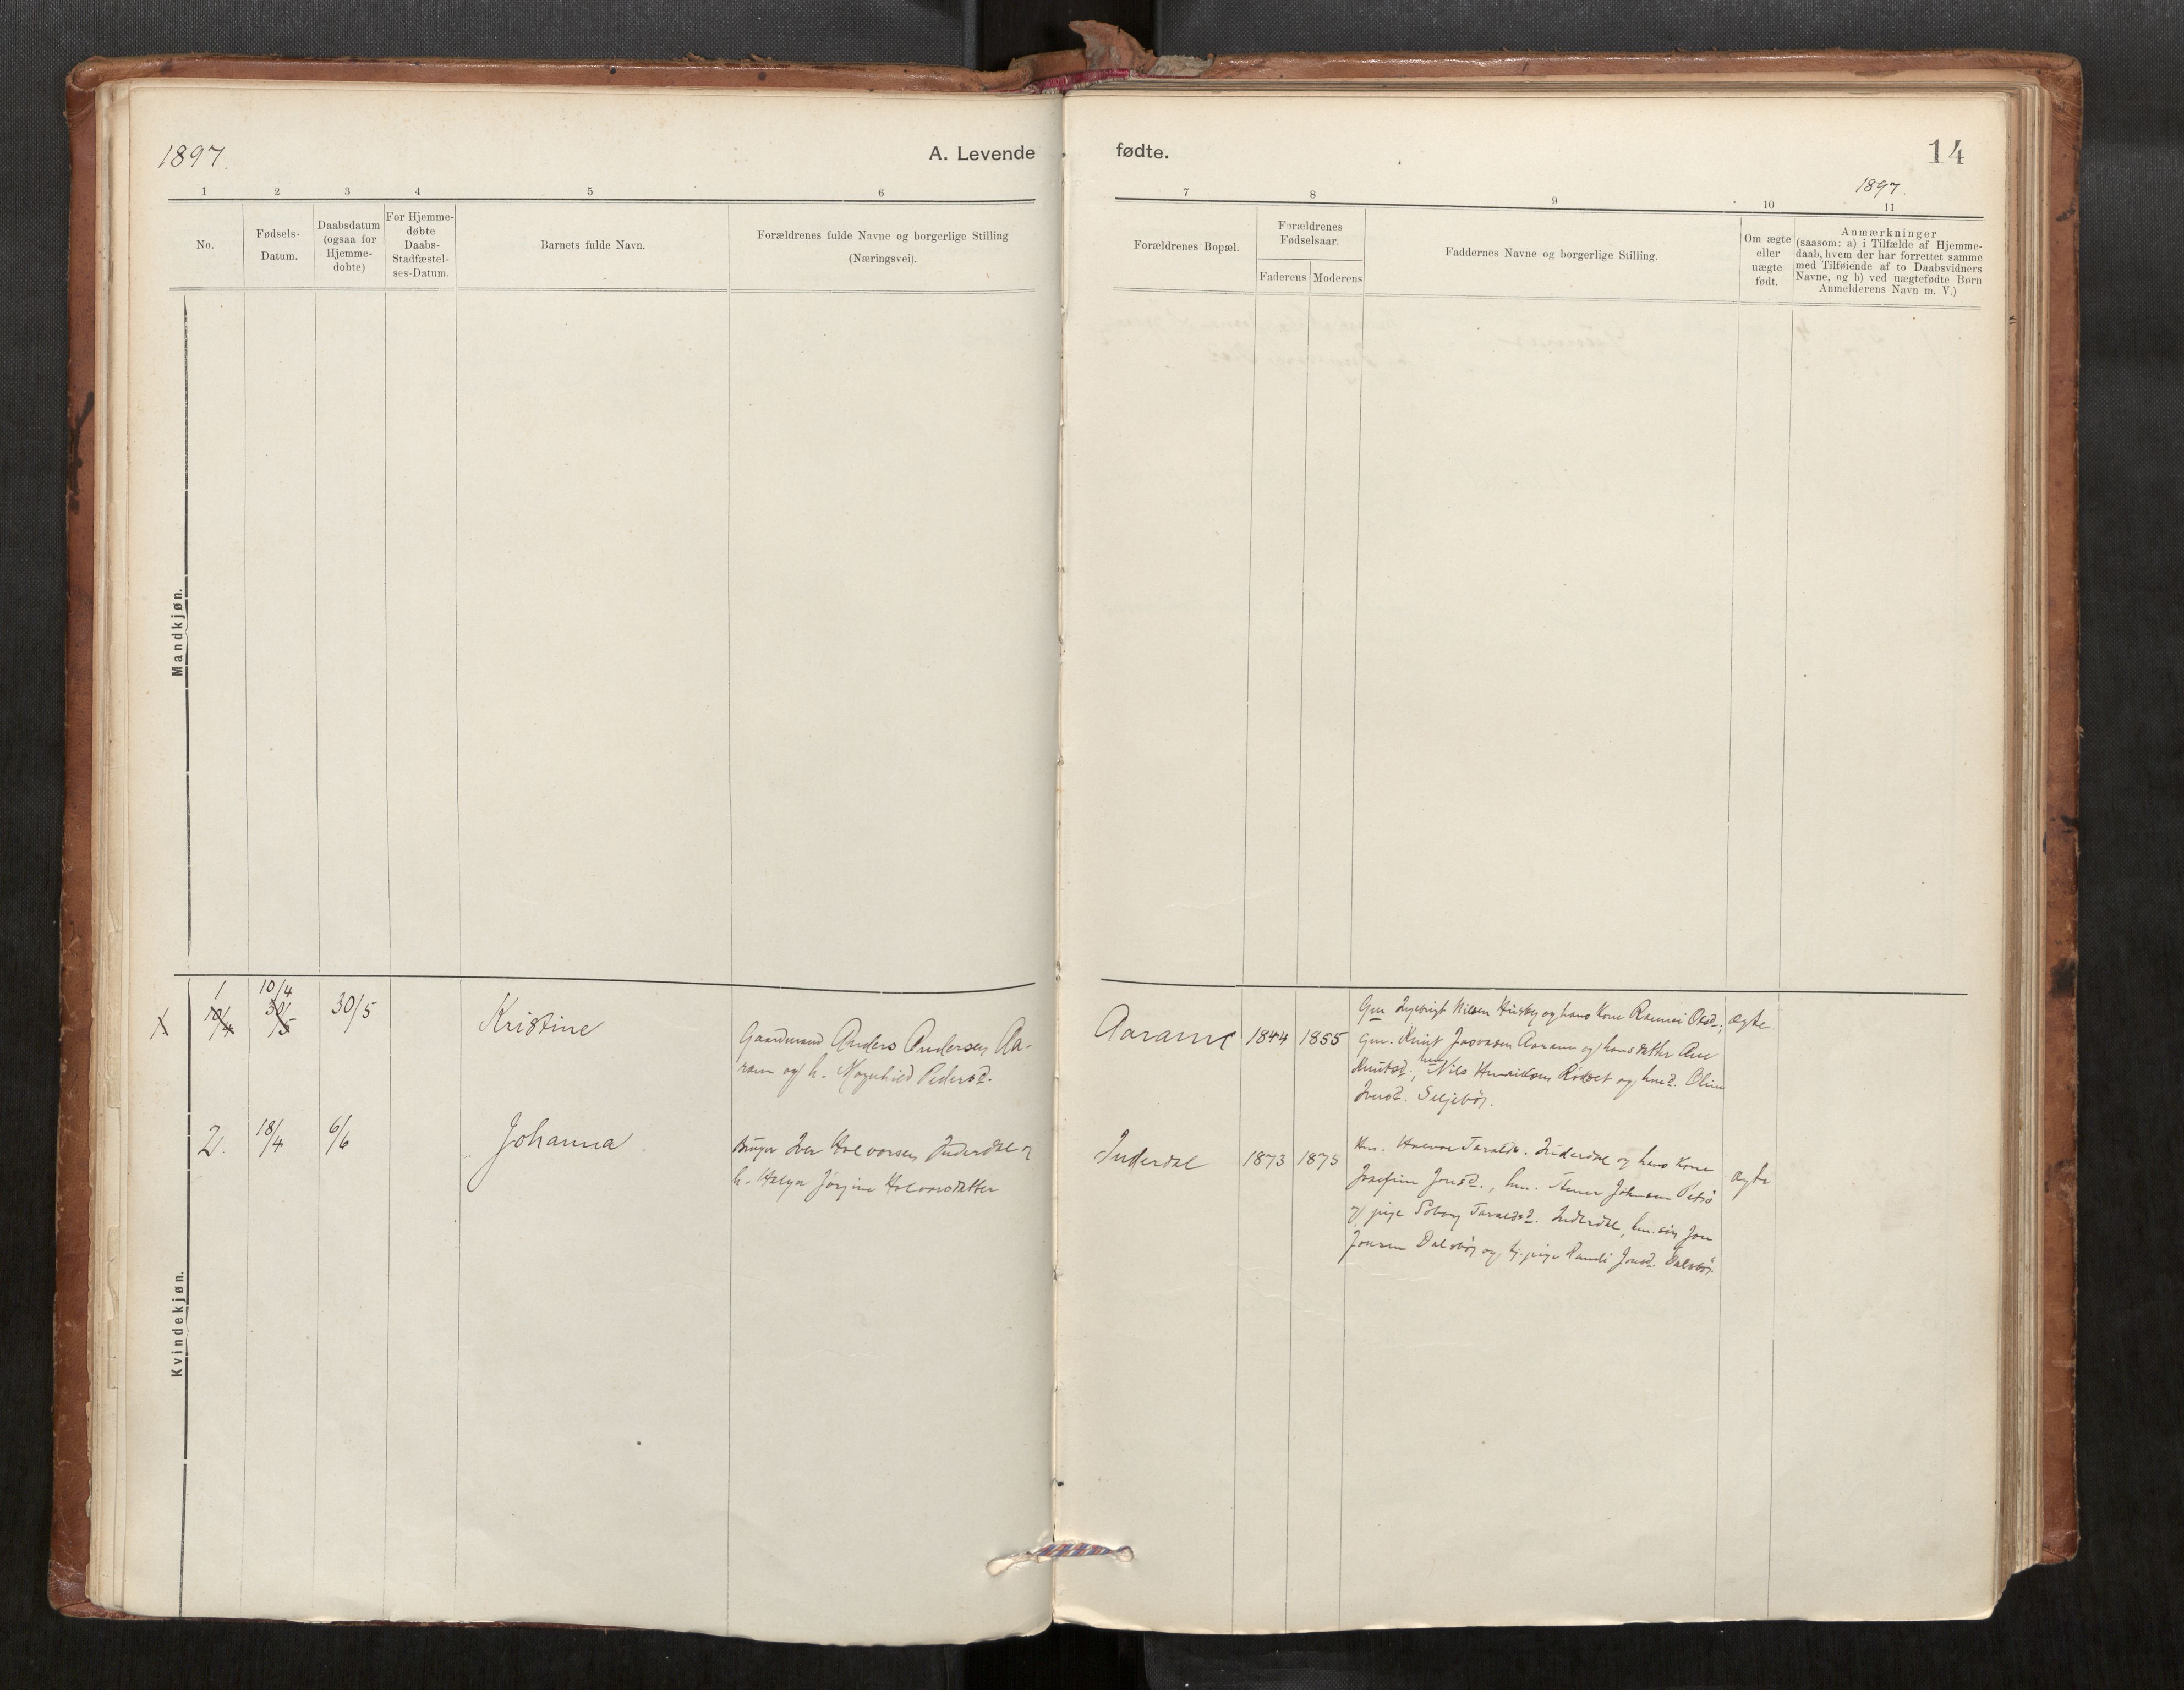 1897.
A. Levende
fødte.
14
1897.
1 2 3 4 5 6
7 8 9 10 11
No.
Fødsels-
Datum.
Daabsdatum
(ogsaa for
Hjemme-
døbte)
For Hjemme-
døbte
Daabs-
Stadfæstel-
ses-Datum.
Barnets fulde Navn.
Forældrenes fulde Navne og borgerlige Stilling
(Næringsvei).
Forældrenes Bopæl.
Forældrenes
Fødselsaar.
Faderens Moderens
Faddernes Navne og borgerlige Stilling.
Om ægte
eller
uægte
født.
Anmærkninger
(saasom: a) i Tilfælde af Hjemme-
daab, hvem der har forrettet samme
med Tilføiende af to Daabsvidners
Navne, og b) ved uægtefødte Børn
Anmelderens Navn m. V.)
Mandkjøn.
Kvindekjøn.
1
10/4
10/4 30/5
30/5
Kristine
Gaardmand Anders Andersen Aa-
ram og h. Magnhild Pedersd.
Aaram 1844 1855
Gm Ingebrigt Nilsen Húsby og hans Kone Olsd.;
Gm. Knút Aaram og hans datter Ane
Knútsd., Nils Henriksen og Oline
Iversd. Seljebø.
ægte.
2. 18/4 6/6
Johanna
Brúger Iver Halvorsen Inderdal og
h. Jørgine Halvorsdatter
Inderdal 1873 1875
Halvor Inderdal og hans Kone
Josefine Jonsd., Johnsen
og pige Inderdal, Jon
Jonsen Dalsbø og pige Randi Jonsd. Dalsbø.
ægte